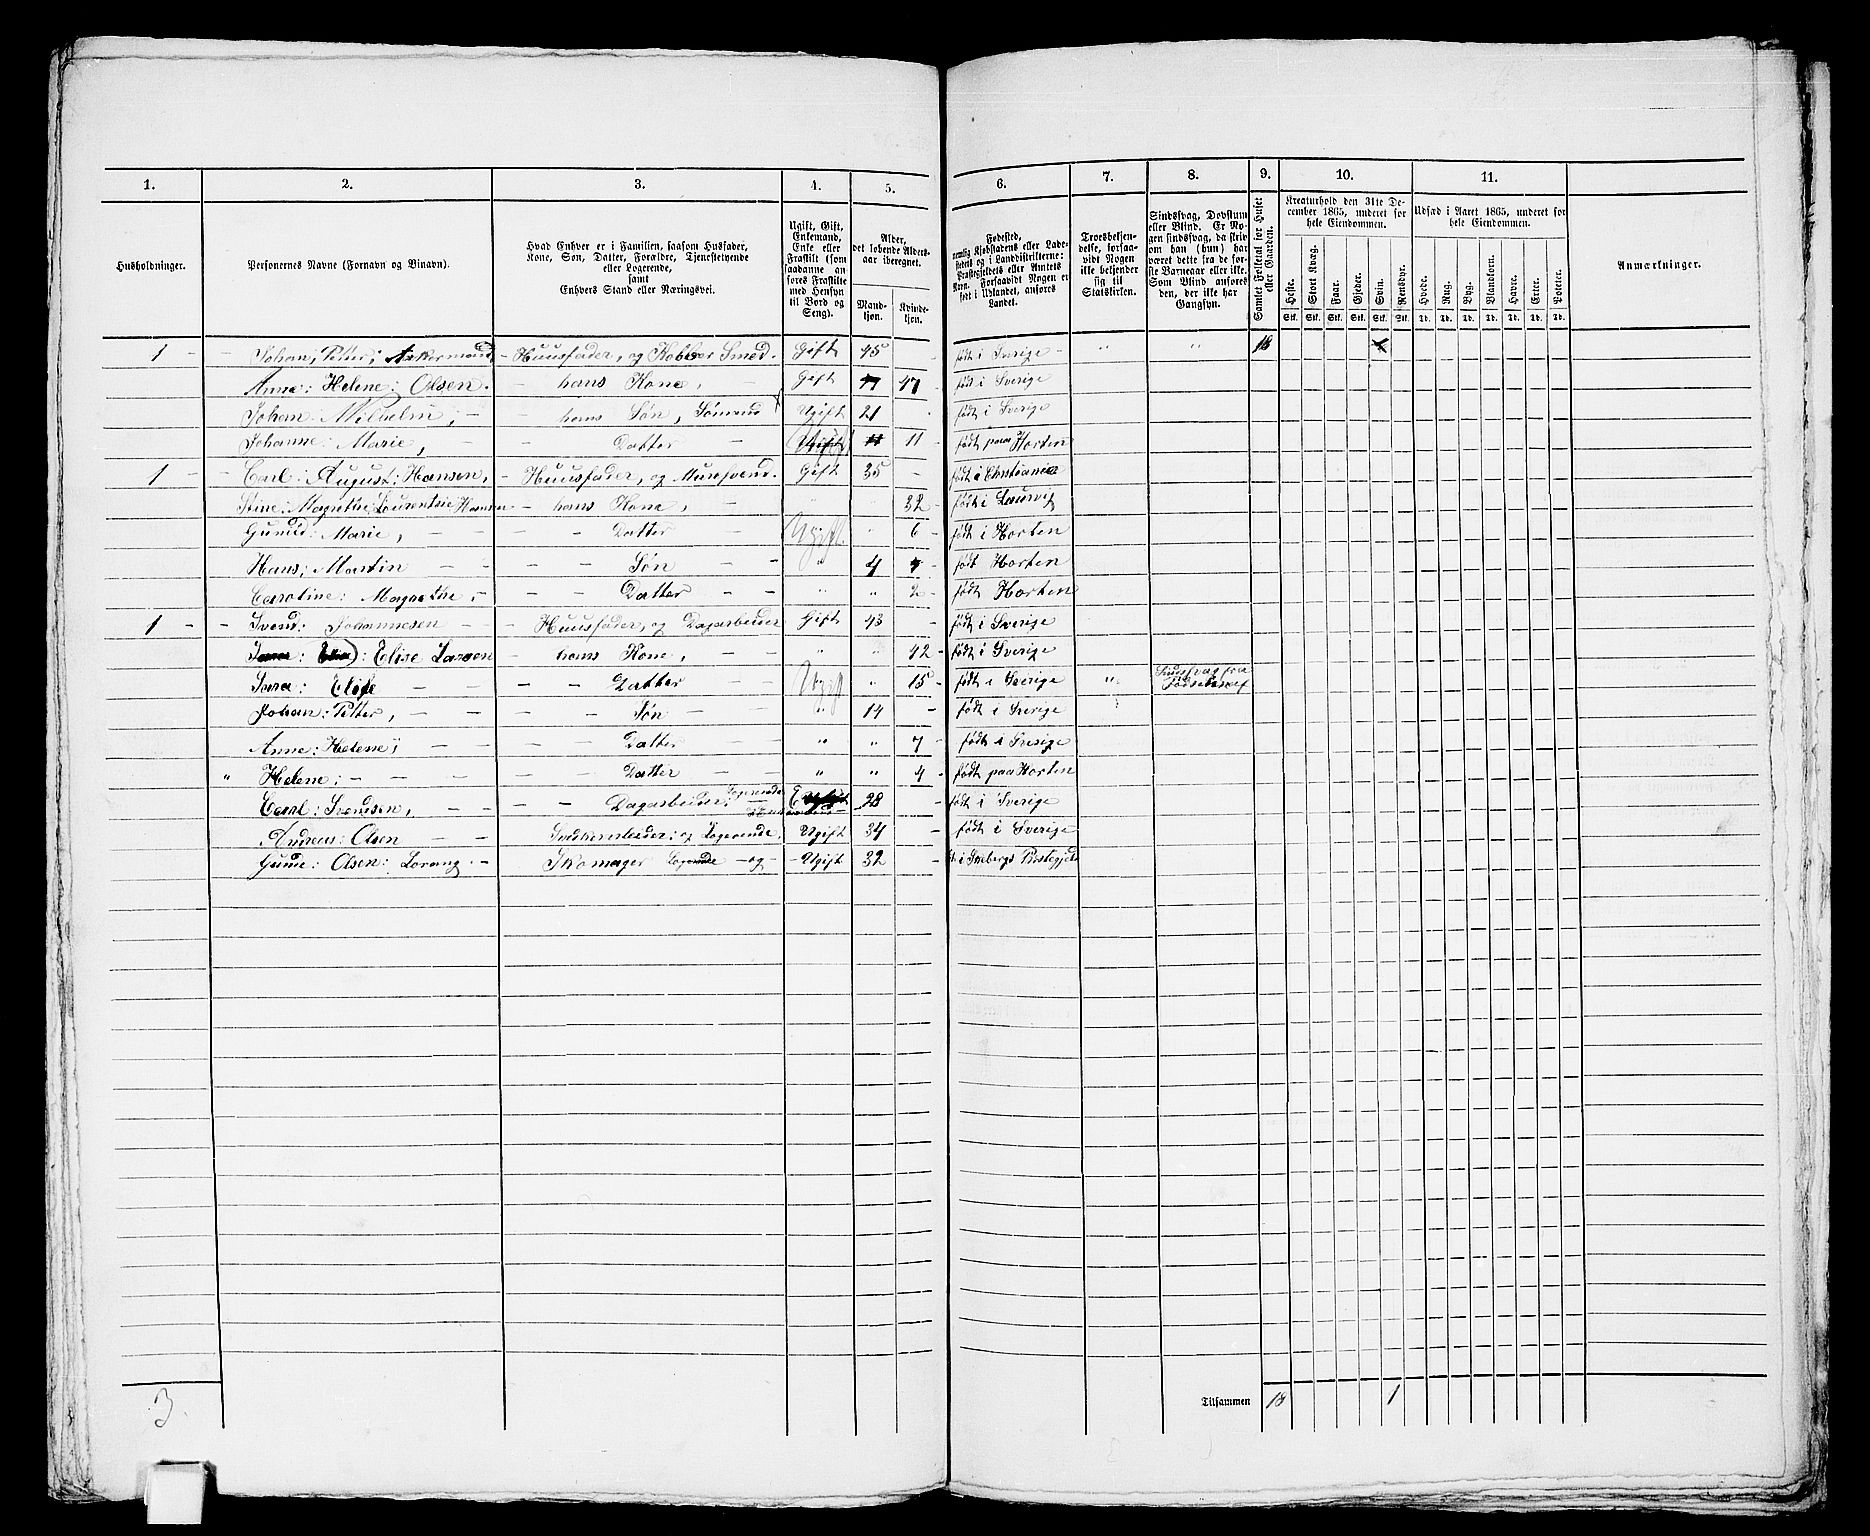 1. 2. 3. 4. 5. 6. 7. 8. 9. 10. 11.
Husholdninger.
Personernes Navne (Fornavn og Tilnavn).
Hvad Enhver er i Familien, saasom Husfader,
Kone, Søn, Datter, Forældre, Tjenestetyende
eller Logerende,
samt
Enhvers Stand eller Næringsvei.
Ugift, Gift,
Enkemand,
Enke eller
Fraskilt (som
saadanne an-
føres Fraskilte
med Hensyn
til Bord og
Seng).
Alder,
det løbende Alders-
aar iberegnet.
Mand-
kjøn.
Kvinde-
kjøn.
Fødested,
nemlig Kjøbstadens eller Lade-
stedets og i Landdistrikterne:
Præstegjeldets eller Amtets
Navn. Forsaavidt Nogen er
født i Udlandet, anføres
Landet.
Troesbekjen-
delse, forsaa-
vidt Nogen
ikke bekjender
sig til
Statskirken.
Sindssvag, Døvstum
eller Blind. Er No-
gen sindssvag, da skriv
om han (hun) har
været dette fra de før-
ste Barneaar eller ikke.
Som Blind anføres
den, der ikke har
Gangsyn.
Samlet Folketal for Huset
eller Gaarden.
Kreaturhold den 31te De-
cember 1865, underet for
hele Eiendommen.
Heste. Stort Kvæg. Faar. Gjeder. Svin. Rensdyr.
Stk. Stk. Stk. Stk. Stk. Stk.
Udsæd i Aaret 1865, underet for
hele Eiendommen.
Hvede. Rug. Byg. Blandkorn. Havre. Erter. Poteter.
Td. Td. Td. Td. Td. Td. Td.
Anmærkninger.
1 Johan; Petter; Ankermand Huusfader, og Kobber Smed. Gift 45 født i Sverige 18
Anne: Helene: Olsen. hans Kone, Gift 47 født i Sverige
Johan Wilhelm; hans Søn, Sømand Ugift 21 født i Sverige
Johanne: Marie, Datter Ugift 11 født paa Horten
1 Carl: August: Hansen, Huusfader, og Muursvend. Gift 35 født i Christiania
Stine: Magrethe: Laurentsie Hansen hans Kone, " 32 født i Laurvig
Gunild: Marie, Datter Ugift. " 6 født i Horten
Hans; Martin Søn " 4 født Horten
Caroline: Magrethe, Datter " " 2 født Horten
1 Svend: Johannesen Huusfader, og Dagarbeider Gift 43 født i Sverige
: Elise Larsen hans Kone, " " 42 født i Sverige
Elise Datter Ugift " 15 født i Sverige " Sindssvag fra
Fødselen af
Johan: Petter, Søn " 14 født i Sverige
Anne: Helene; Datter " " 7 født i Sverige
" Helene: Datter " " 4 født paa Horten
Carl: Svendsen, Dagarbeider; Logerende 28 født i Sverige
Andreas: Olsen og Logerende, Ugift 34 født i Sverige
Gunde: Olsen: Lorang Skomager Logerende og Ugift 32 Præstegjeld
3. Tilsammen 18 1